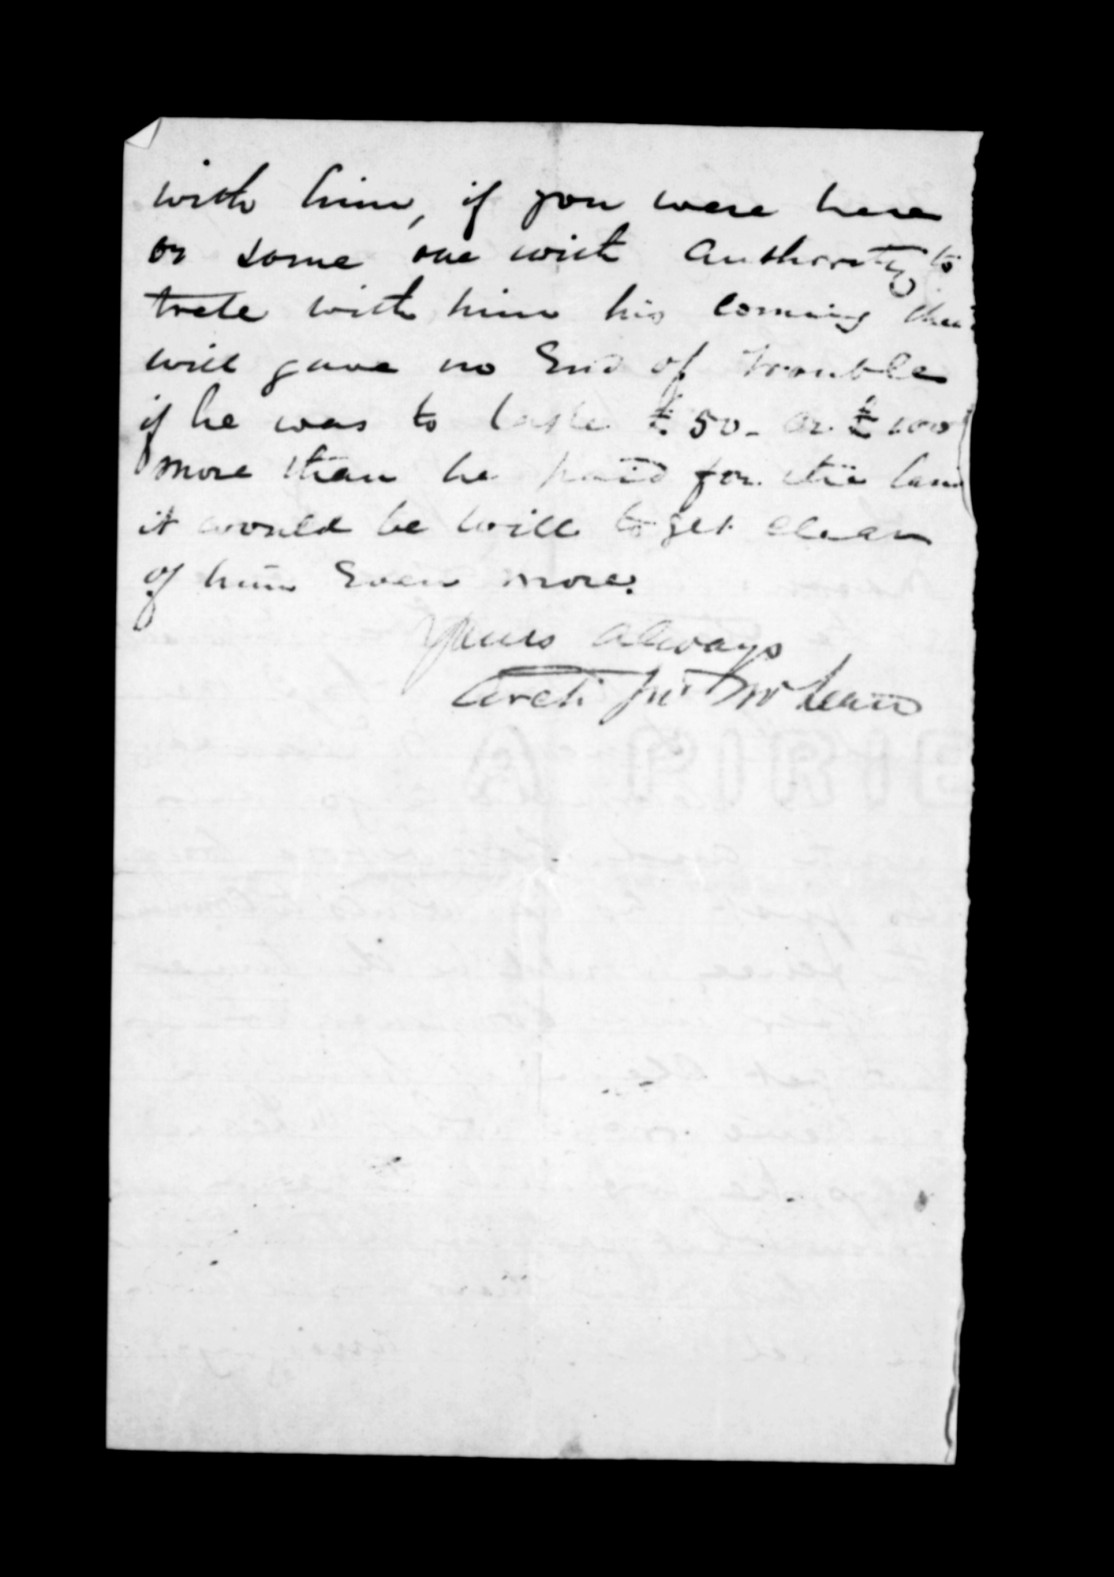 with him, if you were here
or some one with authority to
trete with him his coming
will gave no End of trouble
if he was to take £50- or £100
more than he paid for the land
it would be will to get clear
of him Even more.
Yours always
Archd Jno McLean